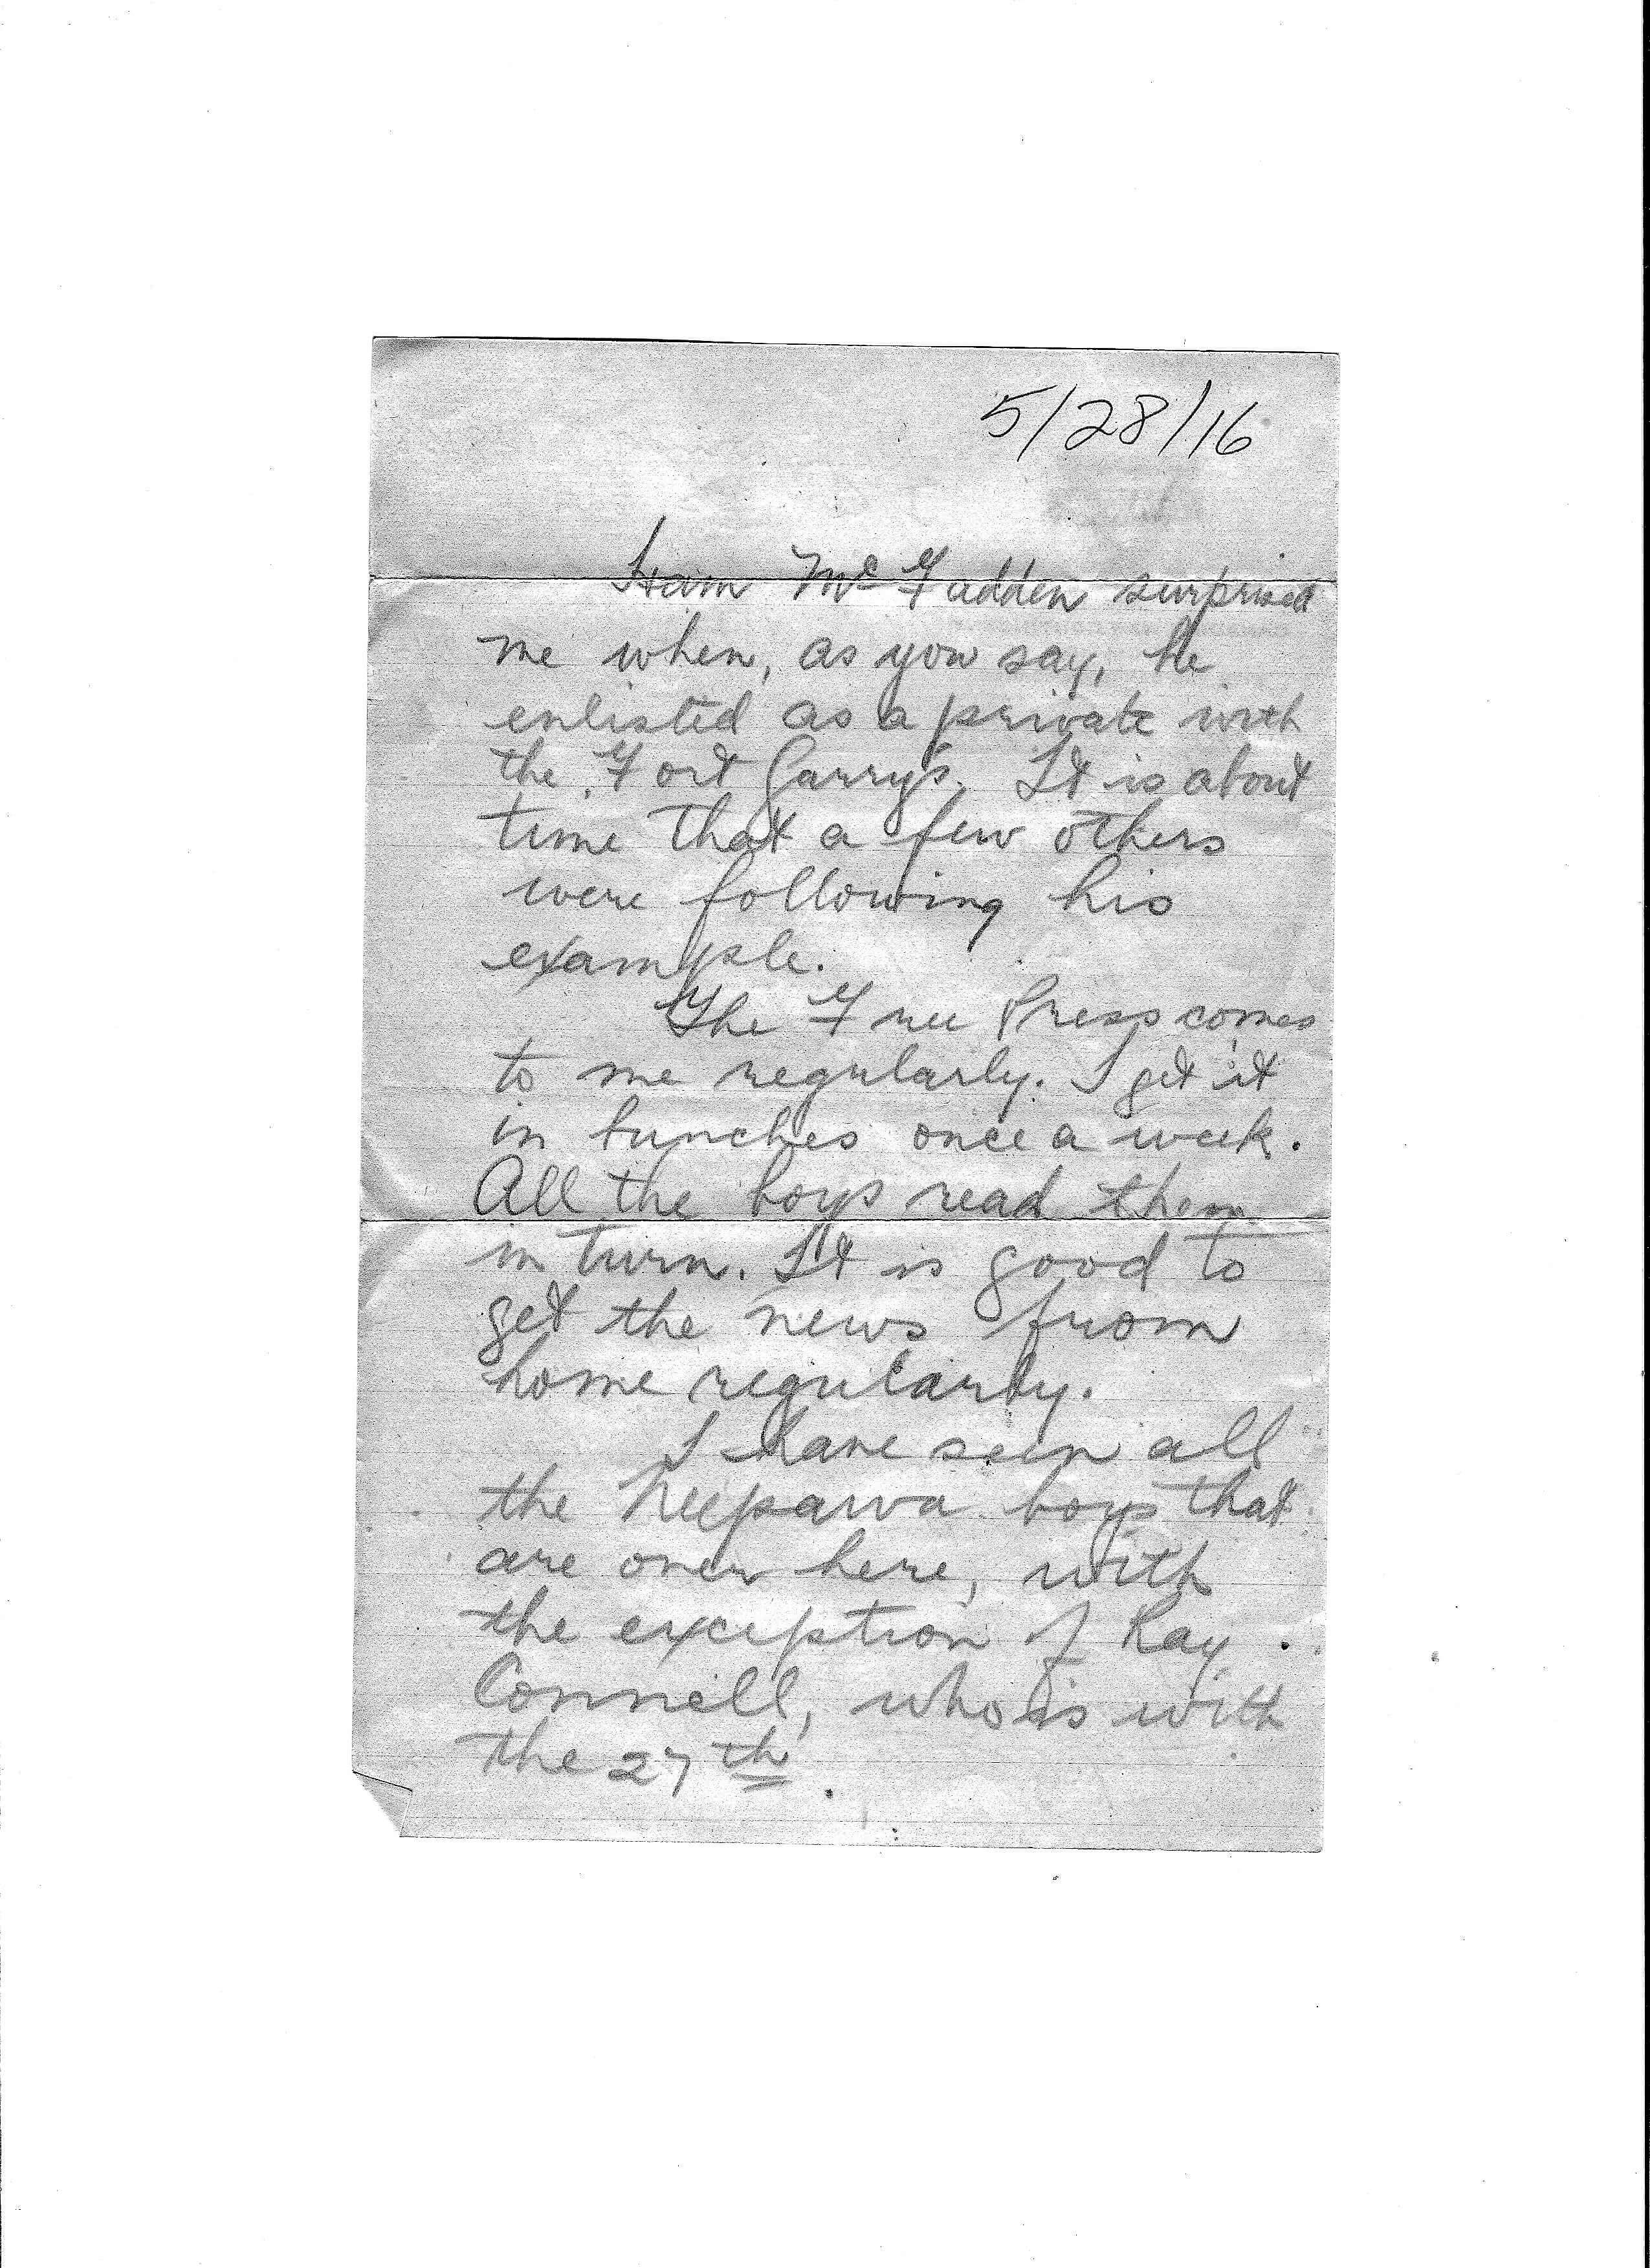 5/28/16
Ham McFadden surprised
me when, as you say, he
enlisted as a private with
the Fort Garrys. It is about
time that a few others
were following his
example.
The Free Press comes
to me regularly. I get it
in bunches once a week.
All the boys read them
in turn. It is good to
get the news from
home regularly.
I have seen all
the Neepawa boys that
are over here, with
the exception of Ray
Connell, who is with
the 27th.